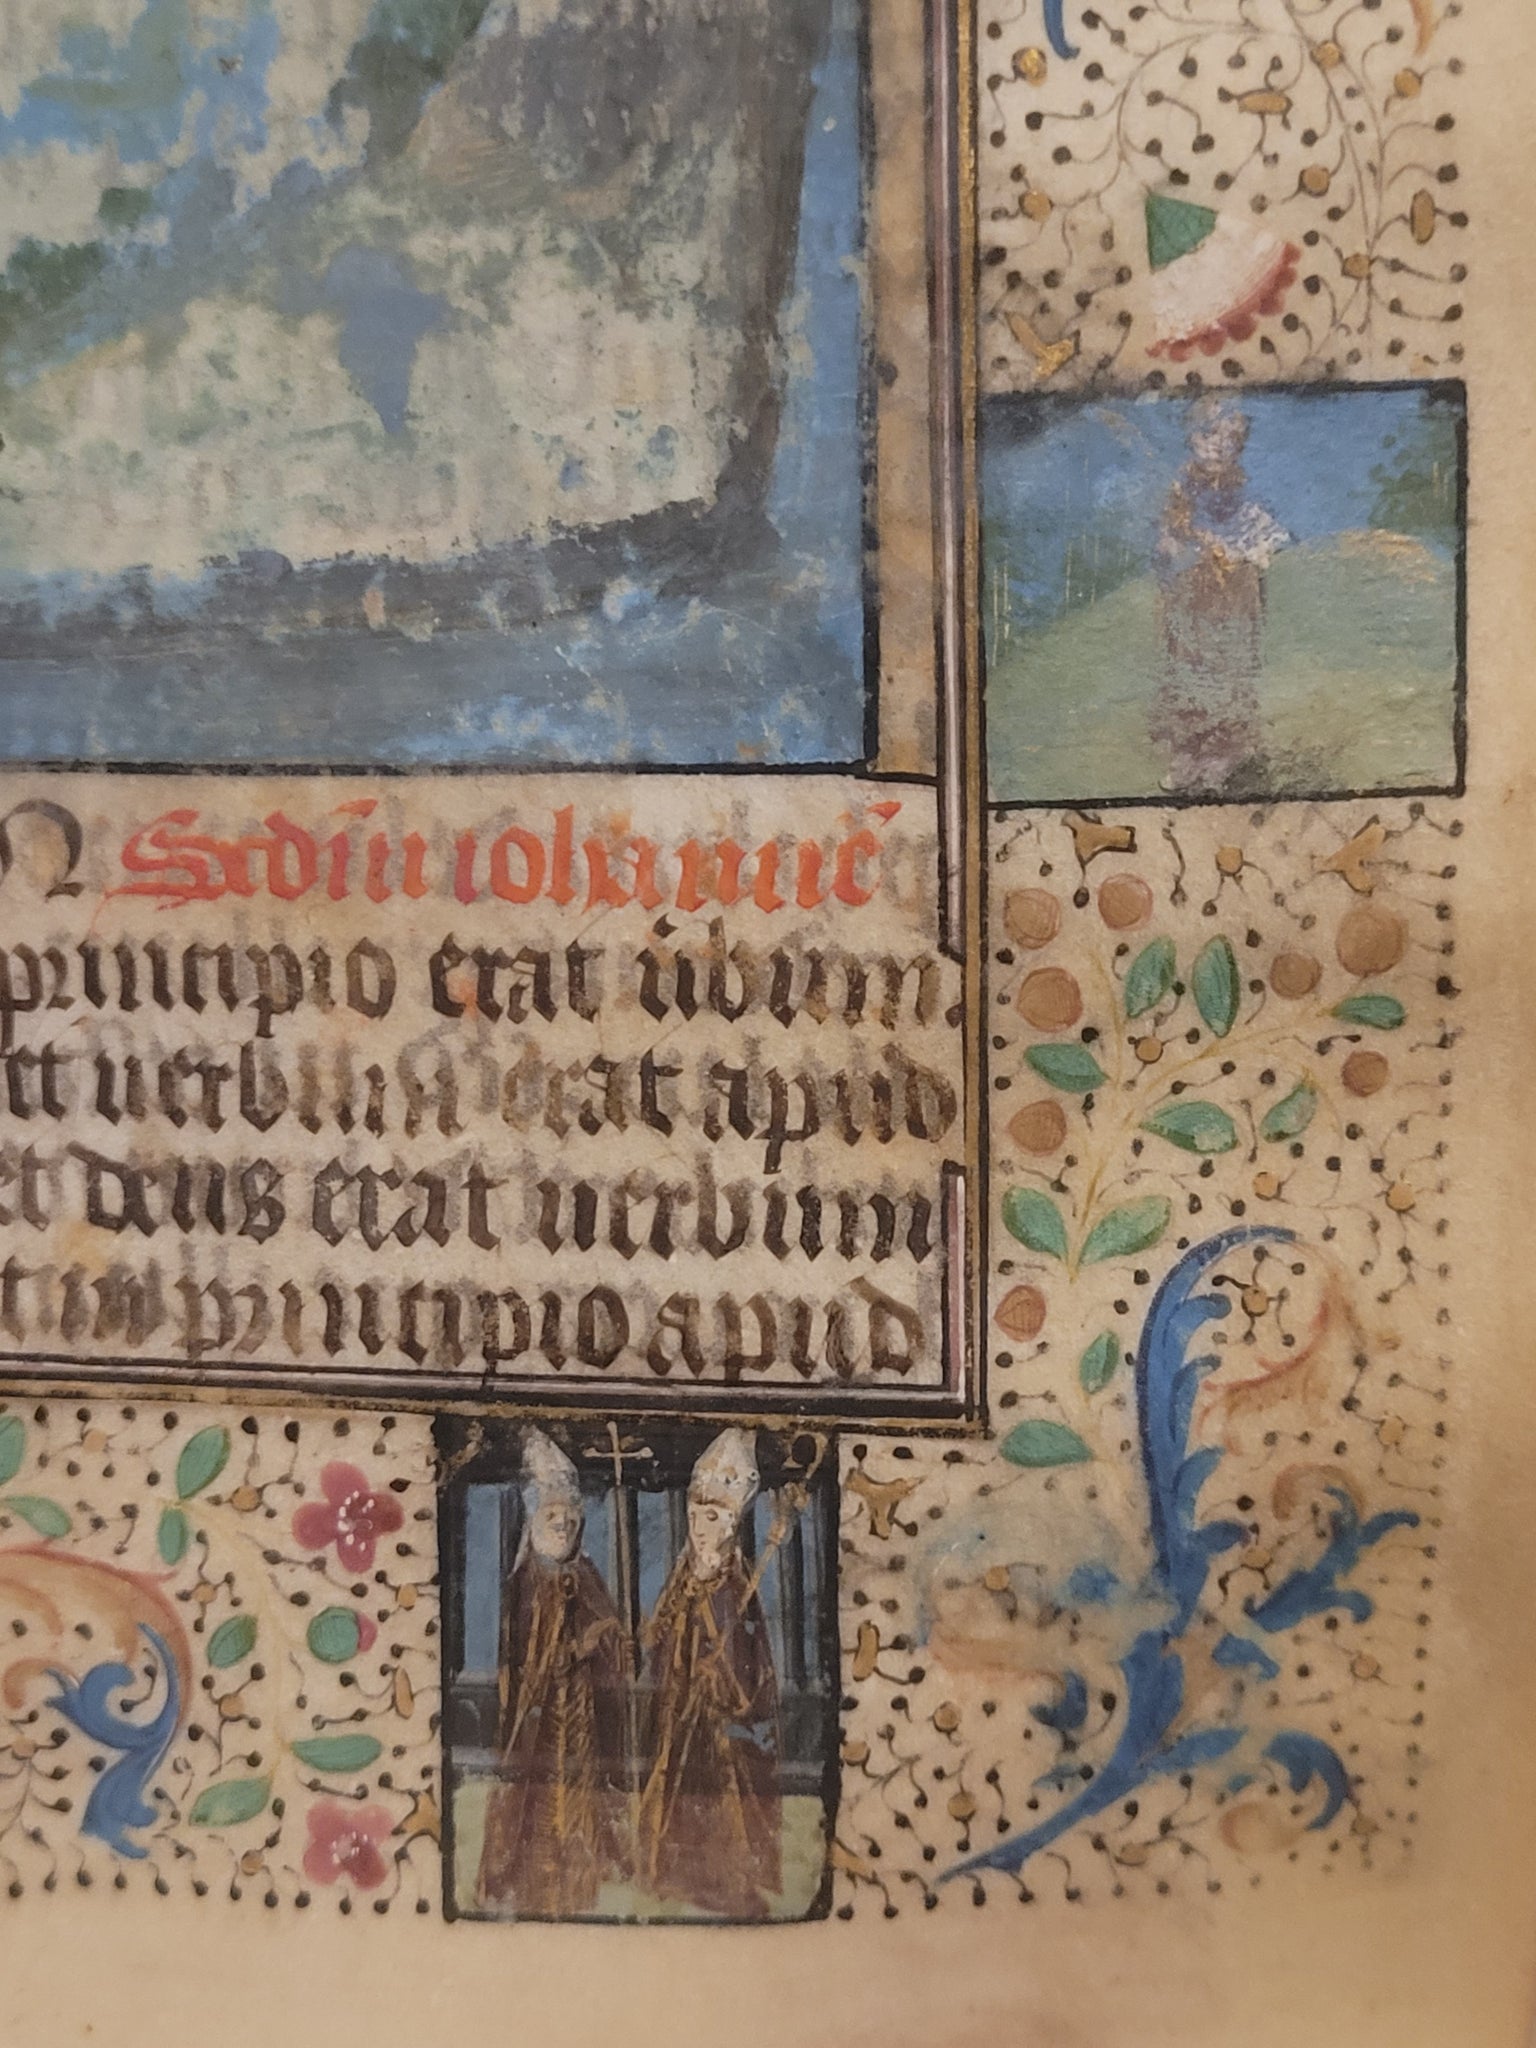 Scdm iohannē
principio erat ūbum.
et uerbum erat apud
et deus erat uerbum
principio apud